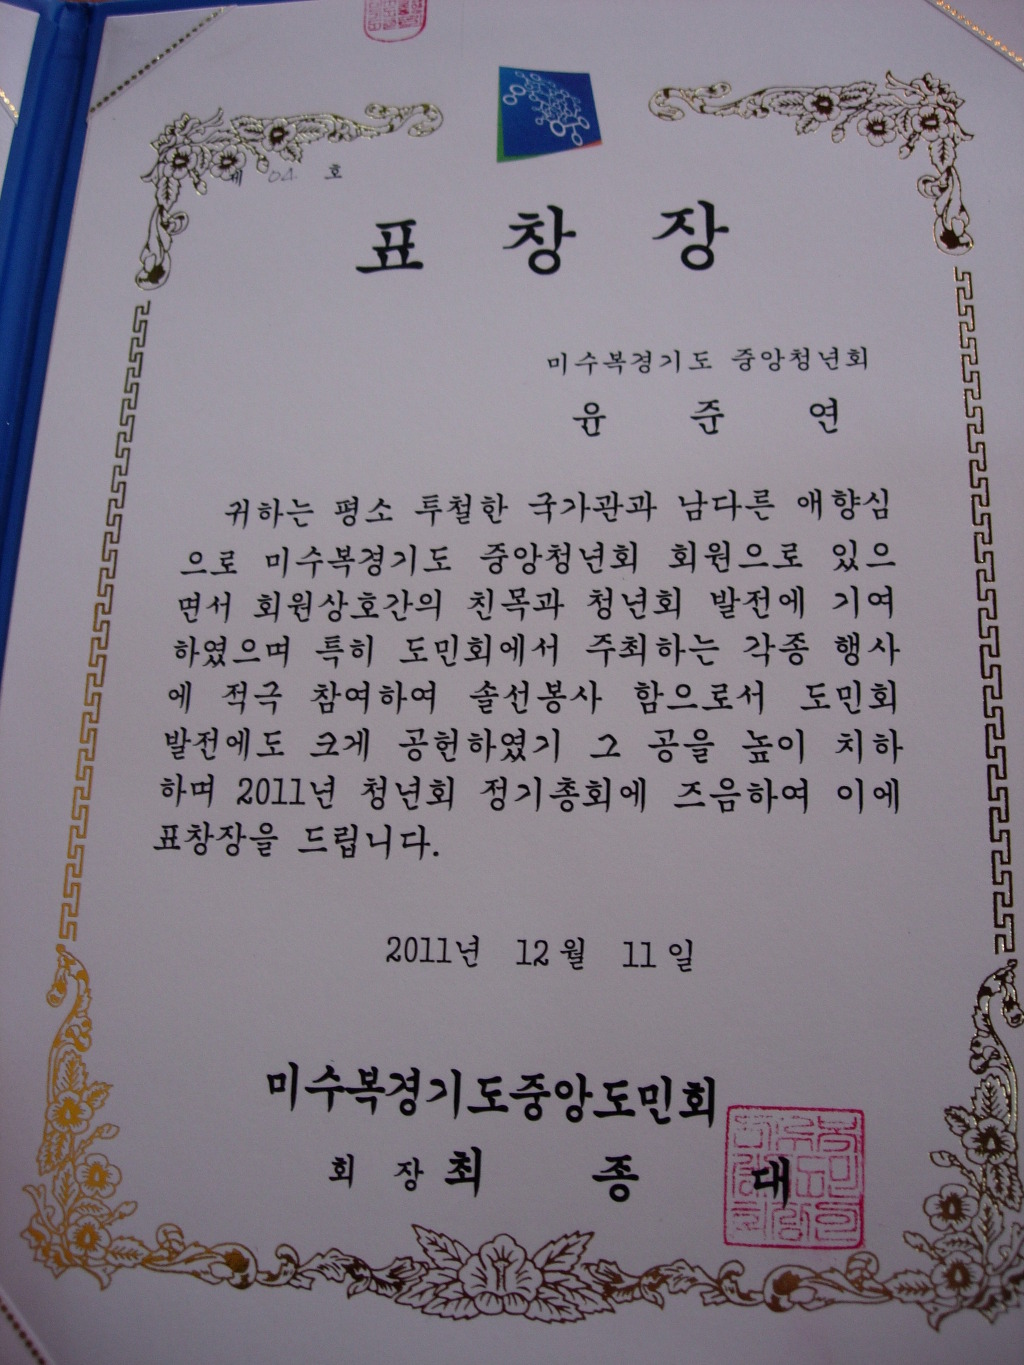 제 04 호
표 창 장
미수복경기도 중앙청년회
윤 준 연
귀하는 평소 투철한 국가관과 남다른 애향심
으로 미수복경기도 중앙청년회 회원으로 있으
면서 회원상호간의 친목과 청년회 발전에 기여
하였으며 특히 도민회에서 주최하는 각종 행사
에 적극 참여하여 솔선봉사 함으로서 도민회
발전에도 크게 공헌하였기 그 공을 높이 치하
하며 2011년 청년회 정기총회에 즈음하여 이에
표창장을 드립니다.
2011년 12월 11일
미수복경기도중앙도민회
회 장 최 종 대